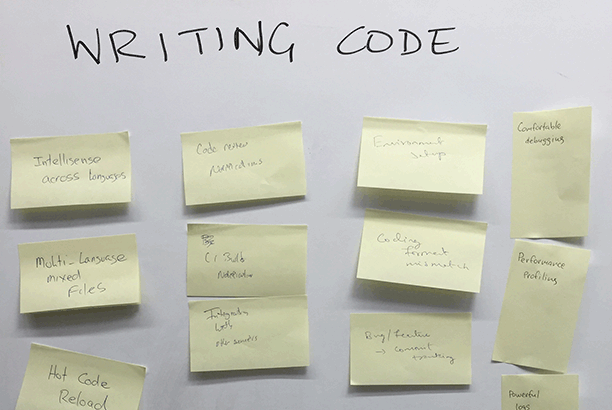 WRITING CODE
Intellisense
across languages
Multi-Language
mixed
Files
Hot Code
Reload
Code review
Notifications
CI Build
Notification
Integration
with
other
Environment
Setup
Coding
format
mismatch
Bug/
→ comment
Comfortable
debugging
Performance
Profiling
Powerful
logs